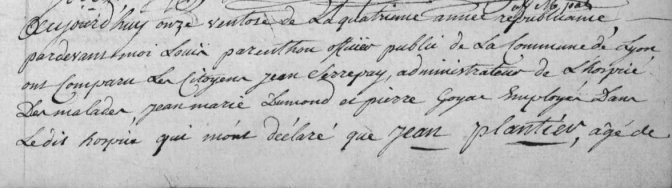 aujourd'huy onze ventose de La quatrieme année republicaine,
pardevant moi Louis parenthou officier public de La Commune de Lyon
ont Comparu Les Citoyens jean Serrepuy, administrateur de L'hospice
Des malades, jean marie Dumond et pierre Goyar Employés Dans
Ledit hospice qui m'ont declaré que jean plantier, agé de